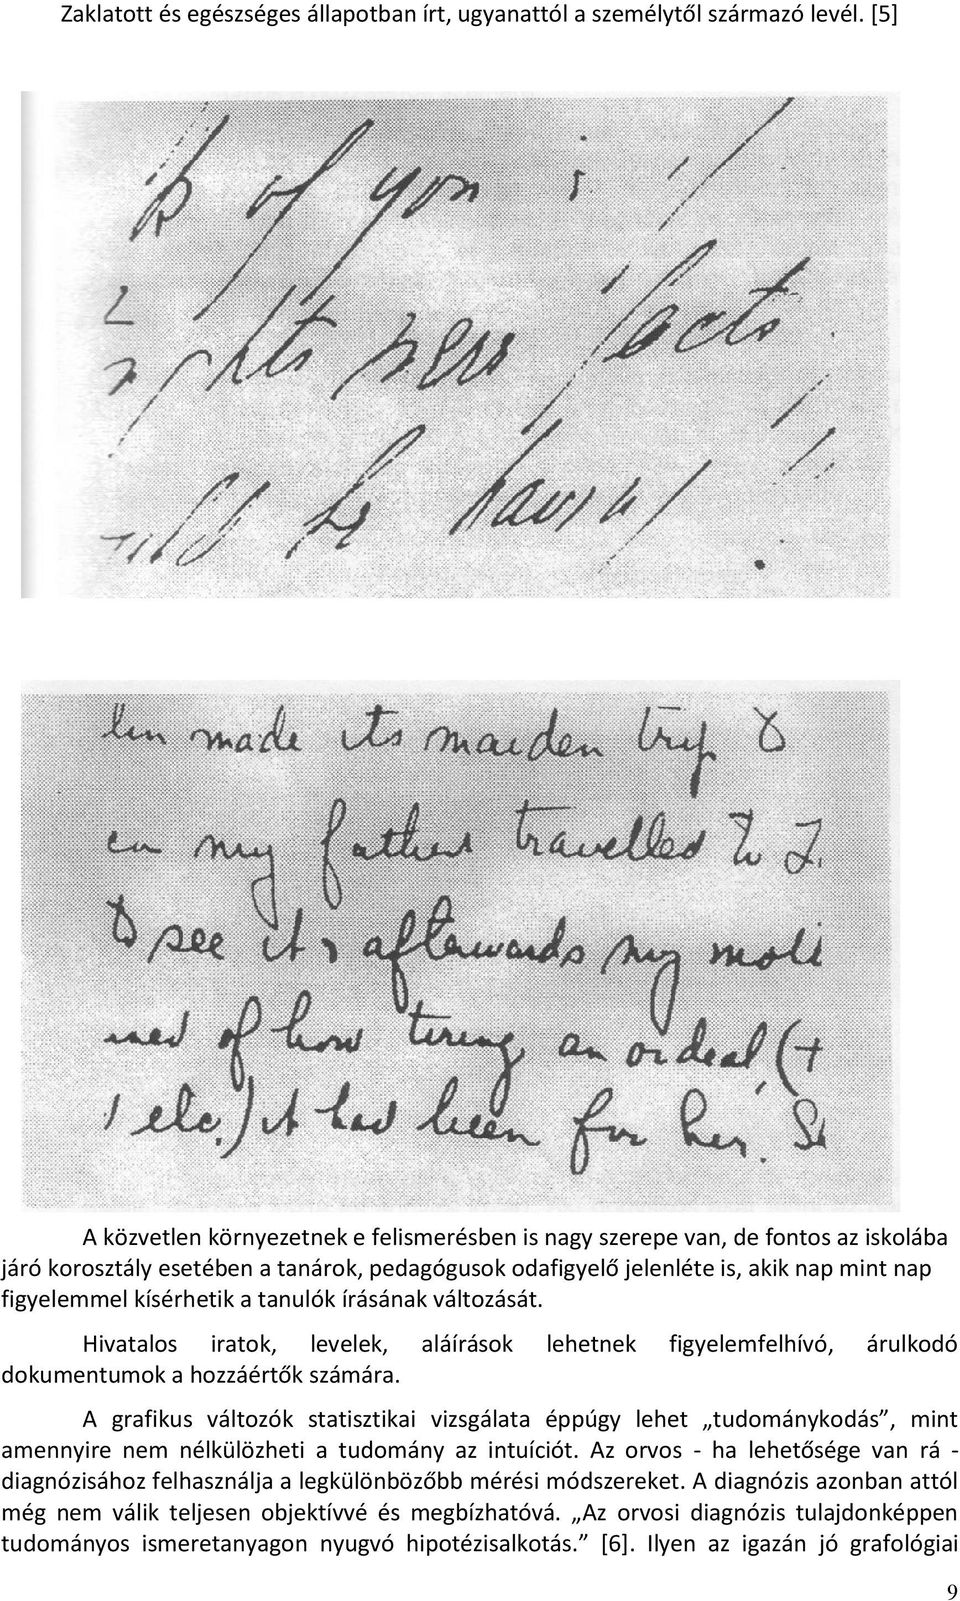 Zaklatott és egészséges állapotban írt, ugyanattól a személytől származó levél. [5]
of you i
ights new facts
uld be having
.
len made its maiden trip to
en my father travelled to I.
to see it, afterwards my moth
ined of how tiring an ordeal, (+
1 etc.) it had been for her. So
A közvetlen környezetnek e felismerésben is nagy szerepe van, de fontos az iskolába
járó korosztály esetében a tanárok, pedagógusok odafigyelő jelenléte is, akik nap mint nap
figyelemmel kísérhetik a tanulók írásának változását.
Hivatalos iratok, levelek, aláírások lehetnek figyelemfelhívó, árulkodó
dokumentumok a hozzáértők számára.
A grafikus változók statisztikai vizsgálata éppúgy lehet „tudománykodás”, mint
amennyire nem nélkülözheti a tudomány az intuíciót. Az orvos - ha lehetősége van rá -
diagnózisához felhasználja a legkülönbözőbb mérési módszereket. A diagnózis azonban attól
még nem válik teljesen objektívvé és megbízhatóvá. „Az orvosi diagnózis tulajdonképpen
tudományos ismeretanyagon nyugvó hipotézisalkotás.” [6]. Ilyen az igazán jó grafológiai
9